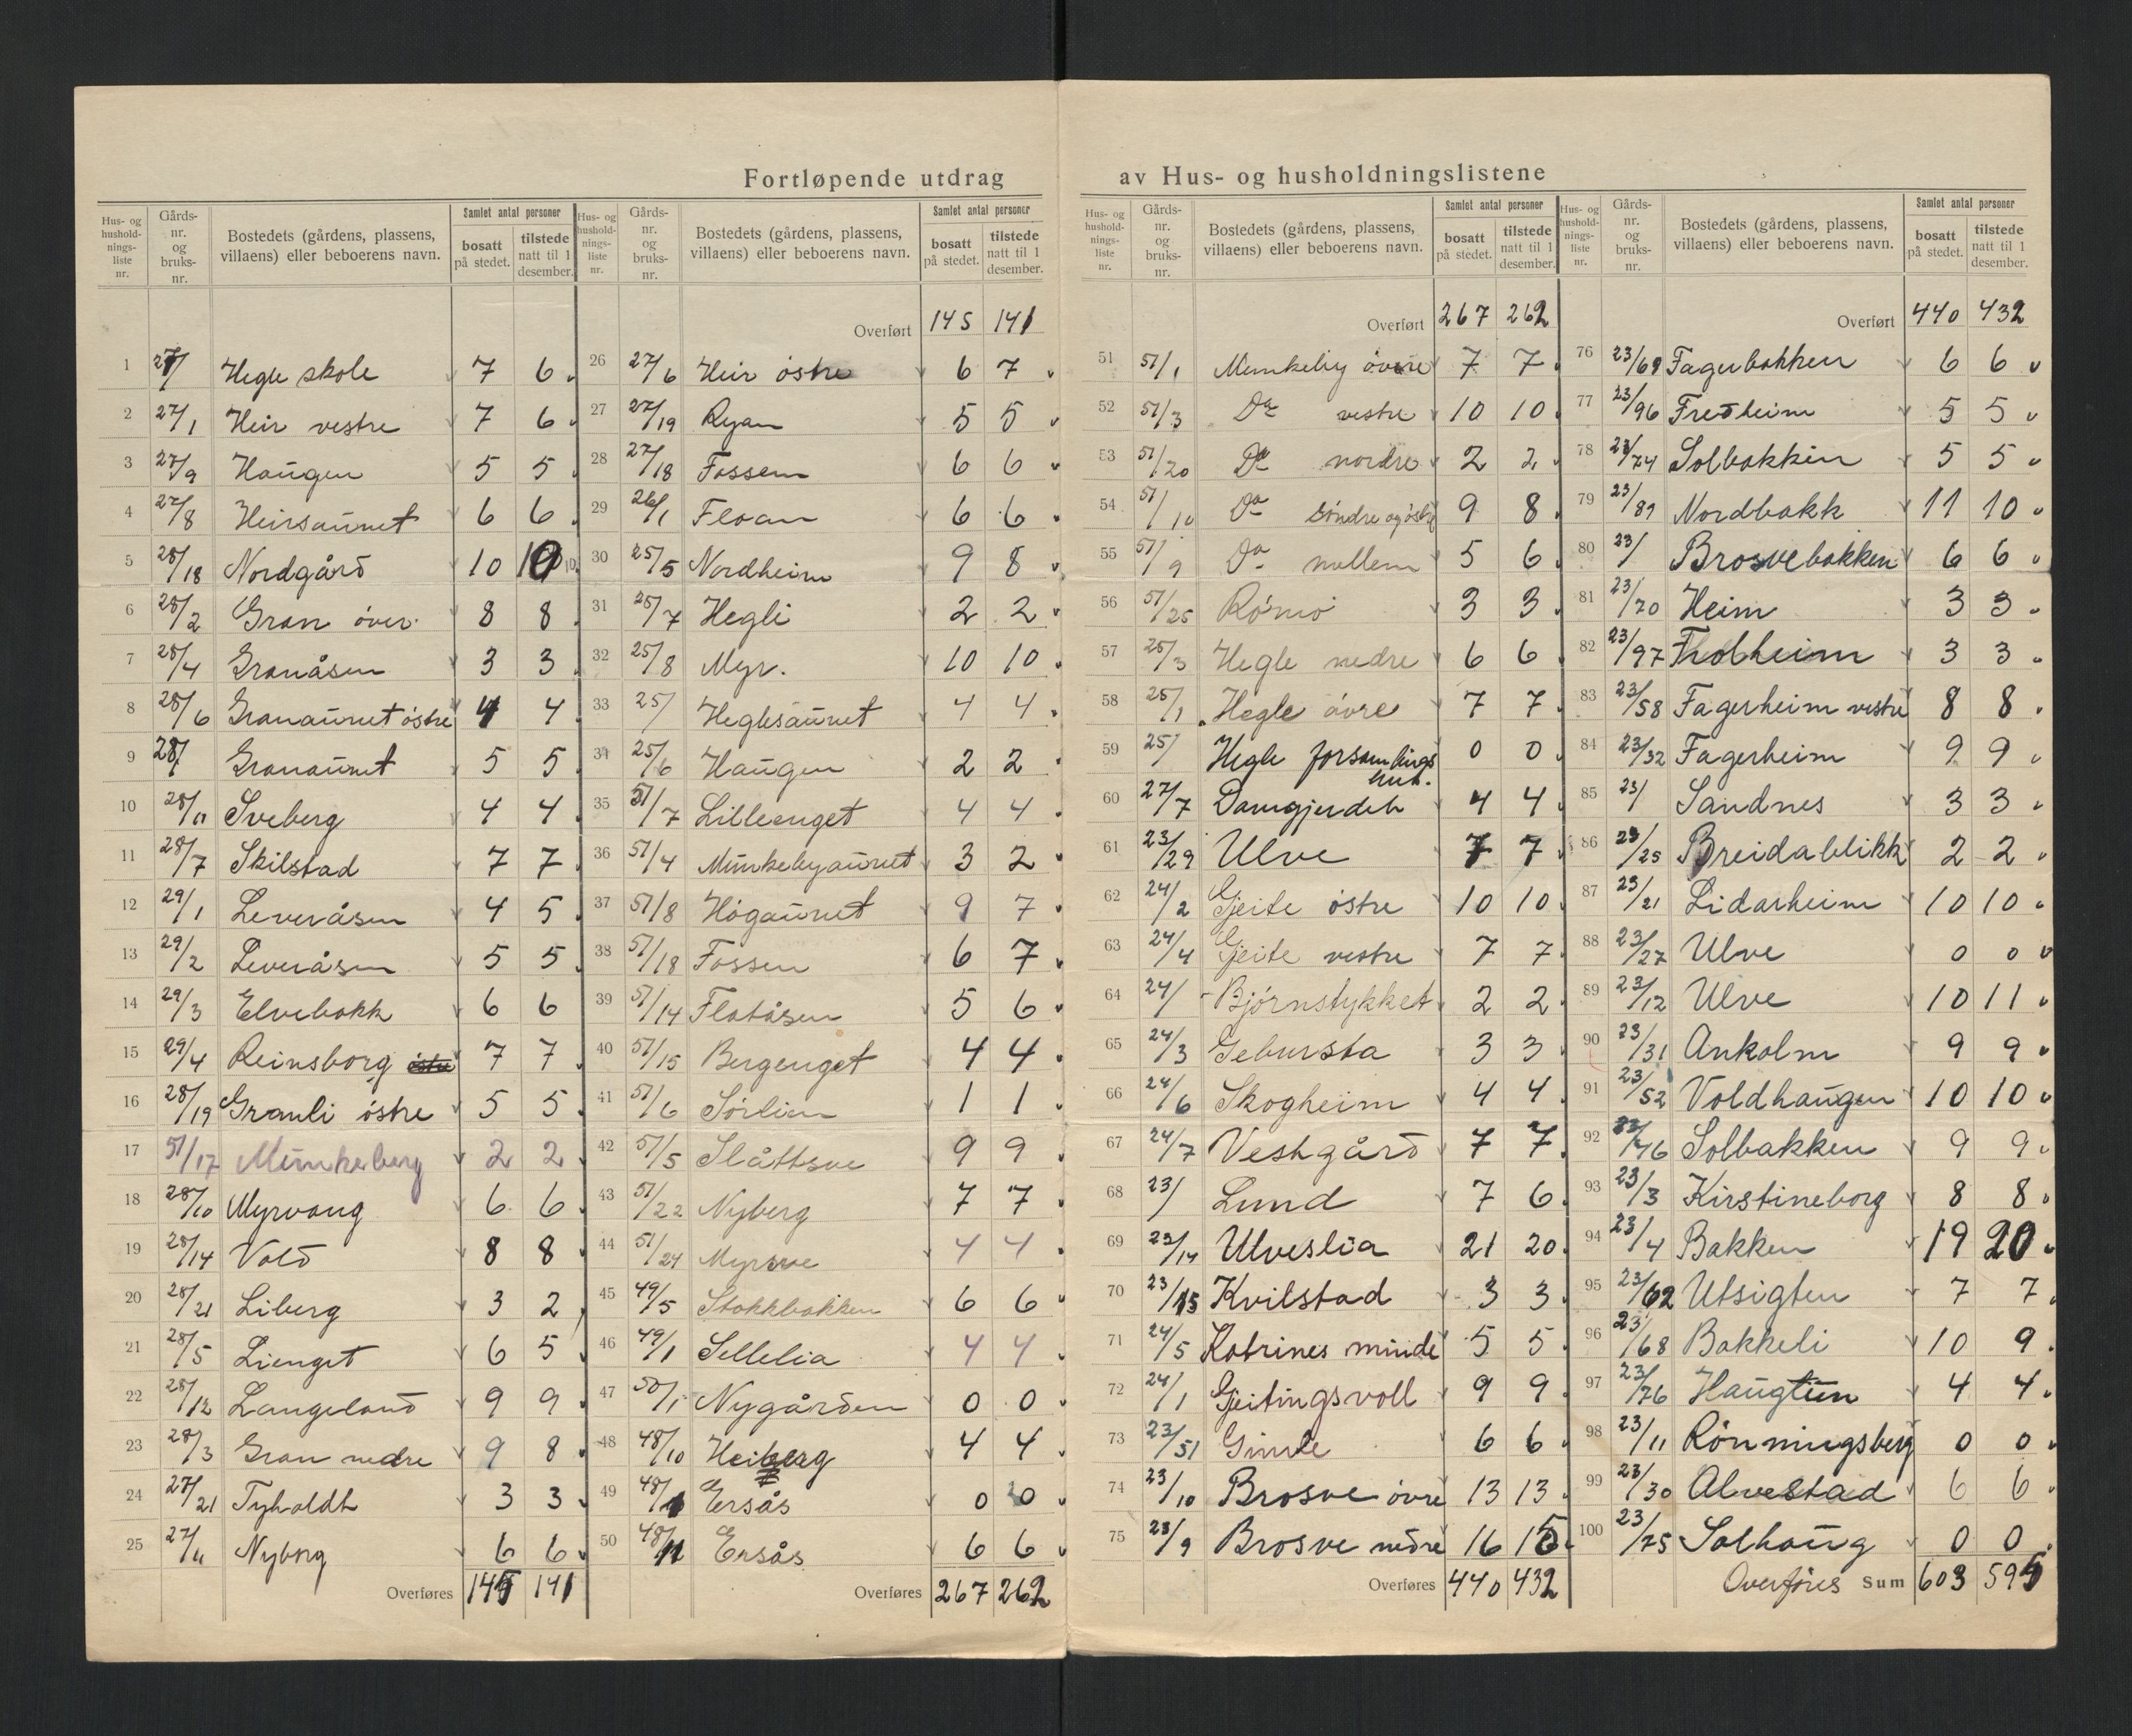 Fortløpende utdrag av Hus- og husholdningslistene
Hus- og hushold-nings-liste nr. | Gårds-nr. og bruks-nr. | Bostedets (gårdens, plassens, villaens) eller beboerens navn. | Samlet antal personer | bosatt på stedet. | tilstede natt til 1 desember.
1 27/ Hegle skole 7 6
2 27/1 Heir vestre 7 6
3 27/9 Haugen 5 5
4 27/8 Heirsaunet 6 6
5 28/18 Nordgård 10 10
6 28/2 Gran över. 8 8
7 28/4 Granåsen 3 3
8 28/6 Granaunet östre 4 4
9 28/ Granaunet 5 5
10 28/11 Sveberg 4 4
11 28/7 Skilstad 7 7
12 29/1 Leveråsen 4 5
13 29/2 Leveråsen 5 5
14 29/3 Elvebakk 6 6
15 29/4 Reinsborg östre 7 7
16 28/19 Granli östre 5 5
17 51/17 Munkeberg 2 2
18 28/10 Myrvang 6 6
19 28/14 Vold 8 8
20 28/21 Liberg 3 2
21 28/5 Lienget 6 5
22 28/12 Langeland 9 9
23 28/3 Gran nedre 9 8
24 27/21 Tyholdt 3 3
25 27/11 Nyborg 6 6
Overføres 145 141
Hus- og hushold-nings-liste nr. | Gårds-nr. og bruks-nr. | Bostedets (gårdens, plassens, villaens) eller beboerens navn. | Samlet antal personer | bosatt på stedet. | tilstede natt til 1 desember.
Overført 145 141
26 27/6 Heir östre 6 7
27 27/19 Ryan 5 5
28 27/18 Fossem 6 6
29 26/1 Floan 6 6
30 25/5 Nordheim 9 8
31 25/7 Hegli 2 2
32 25/8 Myr. 10 10
33 25/ Heglesaunet 4 4
34 25/6 Haugen 2 2
35 51/7 Lilleenget 4 4
36 51/4 Munkebyaunet 3 2
37 51/8 Högaunet 9 7
38 51/18 Fossen 6 7
39 51/14 Flatåsen 5 6
40 51/15 Bergenget 4 4
41 51/6 Sörlien 1 1
42 51/5 Slåttsve 9 9
43 51/22 Nyberg 7 7
44 51/24 Myrsve 4 4
45 49/5 Stokkbakken 6 6
46 49/1 Sellelia 4 4
47 50/1 Nygården 0 0
48 48/10 Heiberg 4 4
49 48/1 Ersås 0 0
50 48/11 Ersås 6 6
Overføres 267 262
Hus- og hushold-nings-liste nr. | Gårds-nr. og bruks-nr. | Bostedets (gårdens, plassens, villaens) eller beboerens navn. | Samlet antal personer | bosatt på stedet. | tilstede natt til 1 desember.
Overført 267 262
51 51/1 Munkeby övre 7 7
52 51/3 Do vestre 10 10
53 51/20 Do nordre 2 2
54 51/10 Do söndre og östre 9 8
55 51/9 Do mellem 5 6
56 51/25 Römo 3 3
57 25/3 Hegle nedre 6 6
58 25/1 Hegle övre 7 7
59 25/ Hegle forsamlings hus. 0 0
60 27/7 Damgjerdet 4 4
61 23/29 Ulve 7 7
62 24/2 Gjeite östre 10 10
63 24/4 Gjeite vestre 7 7
64 24/ Björnstykket 2 2
65 24/3 Gebursta 3 3
66 24/6 Skogheim 4 4
67 24/7 Vestgård 7 7
68 23/ Lund 7 6
69 23/14 Ulveslia 21 20
70 23/15 Kvilstad 3 3
71 24/5 Katrines minde 5 5
72 24/1 Gjeitingsvoll 9 9
73 23/51 Gimle 6 6
74 23/10 Brosve övre 13 13
75 23/9 Brosve nedre 16 15
Overføres 440 432
Hus- og hushold-nings-liste nr. | Gårds-nr. og bruks-nr. | Bostedets (gårdens, plassens, villaens) eller beboerens navn. | Samlet antal personer | bosatt på stedet. | tilstede natt til 1 desember.
Overført 440 432
76 23/69 Fagerbakken 6 6
77 23/96 Fredheim 5 5
78 23/74 Solbakken 5 5
79 23/89 Nordbakk 11 10
80 23/ Brosvebakken 6 6
81 23/70 Heim 3 3
82 23/97 Trolheim 3 3
83 23/58 Fagerheim vestre 8 8
84 23/32 Fagerheim 9 9
85 23/ Sandnes 3 3
86 23/25 Breidablikk 2 2
87 23/21 Lidarheim 10 10
88 23/27 Ulve 0 0
89 23/12 Ulve 10 11
90 23/31 Ankolm 9 9
91 23/52 Voldhaugen 10 10
92 23/46 Solbakken 9 9
93 23/3 Kirstineborg 8 8
94 23/4 Bakken 19 20
95 23/62 Utsigten 7 7
96 23/68 Bakkeli 10 9
97 23/76 Haugtun 4 4
98 23/11 Rönningsberg 0 0
99 23/30 Alvestad 6 6
100 23/75 Solhaug 0 0
Overføres Sum 603 595